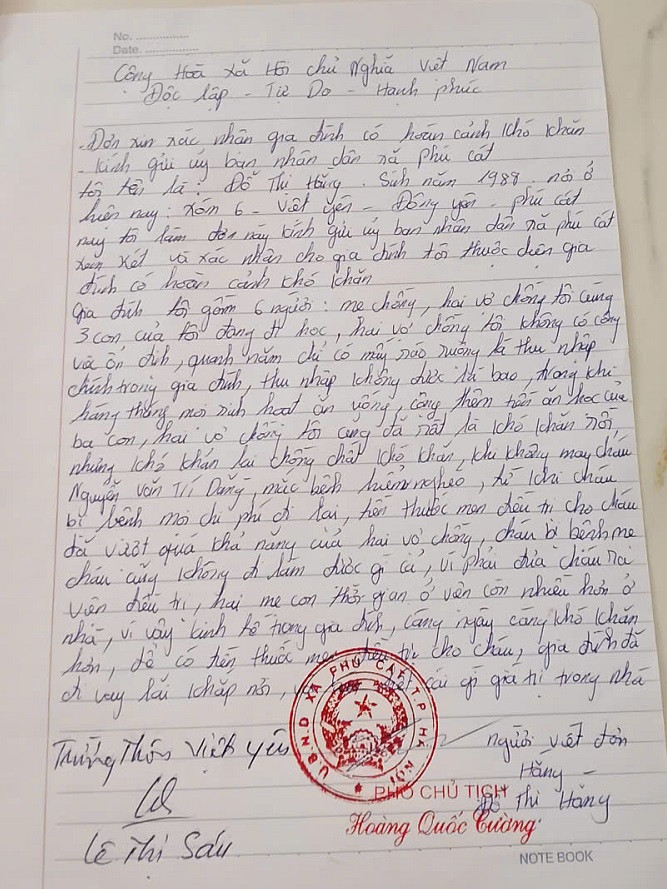 No. ..................
Date. ..................
Cộng Hoà xã Hội chủ Nghĩa Việt Nam
Độc lập - Tự Do - Hạnh phúc
- Đơn xin xác nhận gia đình có hoàn cảnh khó khăn
- Kính gửi uỷ ban nhân dân xã phú cát
tôi tên là : Đỗ Thị Hằng . Sinh năm 1988 . nơi ở
hiện nay : xóm 6 - Việt yên - Đông yên - phú cát
nay tôi làm đơn này kính gửi uỷ ban nhân dân xã phú cát
xem xét và xác nhận cho gia đình tôi thuộc diện gia
đình có hoàn cảnh khó khăn
Gia đình tôi gồm 6 người : mẹ chồng, hai vợ chồng tôi cùng
3 con của tôi đang đi học, hai vợ chồng tôi không có công
việc ổn định, quanh năm chỉ có mấy sào ruộng là thu nhập
chính trong gia đình, thu nhập không được là bao, trong khi
hàng tháng mọi sinh hoạt ăn uống, cộng thêm tiền ăn học của
ba con, hai vợ chồng tôi cũng đã rất là khó khăn rồi,
nhưng khó khăn lại chồng chất khó khăn, khi không may cháu
Nguyễn Văn Trí Dũng, mắc bệnh hiểm nghèo, từ khi cháu
bị bệnh mọi chi phí đi lại, tiền thuốc men điều trị cho cháu
đã vượt quá khả năng của hai vợ chồng, cháu bị bệnh mẹ
cháu cũng không đi làm được gì cả, vì phải đưa cháu ra
viện điều trị, hai mẹ con thời gian ở viện còn nhiều hơn ở
nhà, vì vậy kinh tế trong gia đình, càng ngày càng khó khăn
hơn, để có tiền thuốc men điều trị cho cháu, gia đình đã
đi vay lãi khắp nơi, cái gì giá trị trong nhà
Trưởng Thôn Việt Yên
Người viết đơn
Hằng
Đỗ Thị Hằng
Lê Thị Sáu
U.B.N.D XÃ PHÚ CÁT T.P HÀ NỘI
PHÓ CHỦ TỊCH
Hoàng Quốc Cường
NOTE BOOK